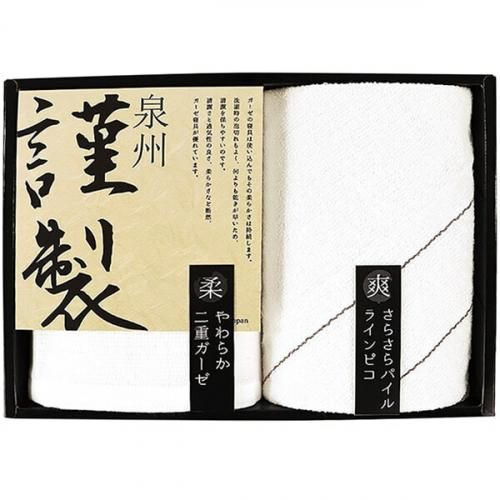 泉州
謹製
ガーゼの寝具は使い込んでもその柔らかさは持続します。
洗濯時の泡切れもよく、何よりも乾きが早いため、
清潔を保ちやすいのです。
清潔さと通気性の良さ、柔らかさなど断然、
ガーゼ寝具が優れています。
柔
やわらか
二重ガーゼ
apan
爽
さらさらパイル
ラインピコ